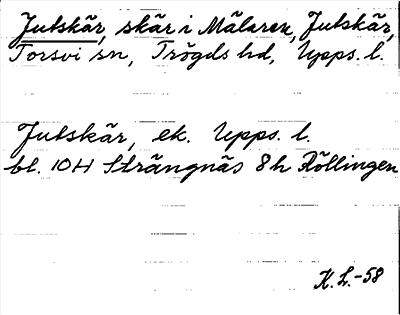 Jutskär, skär i Mälaren, Jutskär,
Torsvi sn, Trögds hd, Upps. l.
Jutskär, ek. Upps. l.
bl. 10H Strängnäs 8h Röllingen
K. L.-58